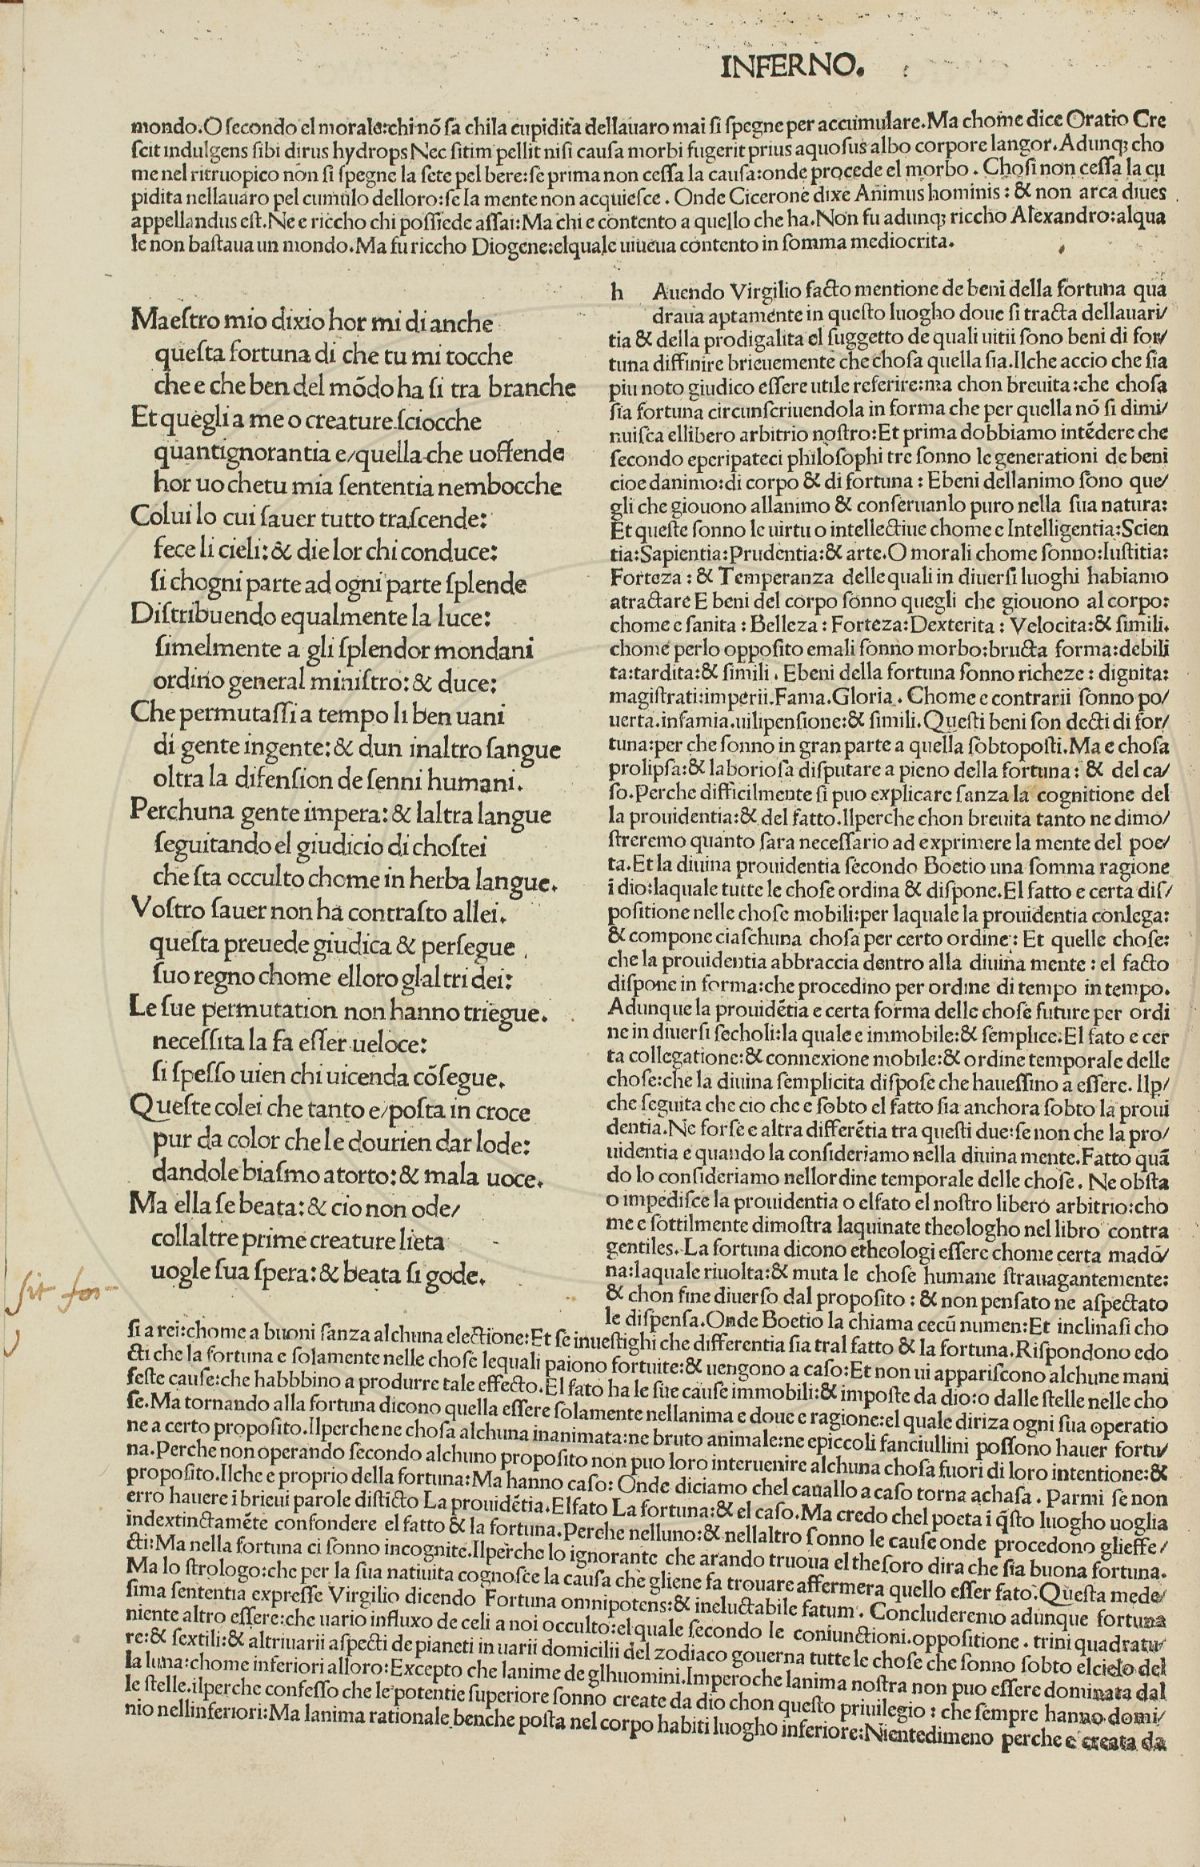 INFERNO.
mondo.O secondo el morale:chi nõ sa chila cupidita dellauaro mai si spegne per accumulare.Ma chome dice Oratio Cre
scit indulgens sibi dirus hydrops Nec sitim pellit nisi causa morbi fugerit prius aquosus albo corpore langor.Adunq; cho
me nel ritruopico non si spegne la sete pel bere:se prima non cessa la causa:onde procede el morbo . Chosi non cessa la cu
pidita nellauaro pel cumulo delloro:se la mente non acquiesce . Onde Cicerone dixe Animus hominis : & non arca diues
appellandus est.Ne e riccho chi possiede assai:Ma chi e contento a quello che ha.Non fu adunq; riccho Alexandro:alqua
le non bastaua un mondo.Ma fu riccho Diogene:elquale uiueua contento in somma mediocrita.
Maestro mio dixio hor mi di anche
questa fortuna di che tu mi tocche
che e che ben del mõdo ha si tra branche
Et quegli a me o creature sciocche
quantignorantia e/quella che uoffende
hor uo chetu mia sententia nembocche
Colui lo cui sauer tutto trascende:
fece li cieli: & die lor chi conduce:
si chogni parte ad ogni parte splende
Distribuendo equalmente la luce:
similmente a gli splendor mondani
ordino general ministro: & duce:
Che permutassi a tempo li ben uani
di gente ingente: & dun inaltro sangue
oltra la difension de senni humani.
Perchuna gente impera: & laltra langue
seguitando el giudicio di chostei
che sta occulto chome in herba langue.
Vostro sauer non ha contrasto allei.
questa preuede giudica & persegue
suo regno chome elloro glaltri dei:
Le sue permutation non hanno triegue.
necessita la fa esser ueloce:
si spesso uien chi uicenda cõsegue.
Queste colei che tanto e/posta in croce
pur da color che le dourien dar lode:
dandole biasmo atorto: & mala uoce.
Ma ella se beata: & cio non ode/
collaltre prime creature lieta
uogle sua spera: & beata si gode.
sit for-
h Auendo Virgilio facto mentione de beni della fortuna qua
draua aptamente in questo luogho doue si tracta dellauari/
tia & della prodigalita el suggetto de quali uitii sono beni di for/
tuna diffinire brieuemente che chosa quella sia.Ilche accio che sia
piu noto giudico essere utile referire:ma chon breuita:che chosa
sia fortuna circunscriuendola in forma che per quella nõ si dimi/
nuisca ellibero arbitrio nostro:Et prima dobbiamo intẽdere che
secondo eperipateci philosophi tre sonno le generationi de beni
cioe danimo:di corpo & di fortuna : E beni dellanimo sono que/
gli che giouono allanimo & conseruanlo puro nella sua natura:
Et queste sonno le uirtu o intellectiue chome e Intelligentia:Scien
tia:Sapientia:Prudentia:& arte.O morali chome sonno:Iustitia:
Forteza : & Temperanza delle quali in diuersi luoghi habiamo
atractare E beni del corpo sonno quegli che giouono al corpo:
chome e sanita : Belleza : Forteza:Dexterita : Velocita:& simili.
chome perlo opposito emali sonno morbo:bructa forma:debili
ta:tardita:& simili . Ebeni della fortuna sonno richeze : dignita:
magistrati:imperii.Fama.Gloria . Chome e contrarii sonno po/
uerta.infamia.uilipensione:& simili.Questi beni son decti di for/
tuna:per che sonno in gran parte a quella sobtoposti.Ma e chosa
prolipsa:& laboriosa disputare a pieno della fortuna : & del ca/
so.Perche difficilmente si puo explicare sanza la cognitione del
la prouidentia:& del fatto.Ilperche chon breuita tanto ne dimo/
streremo quanto sara necessario ad exprimere la mente del poe/
ta.Et la diuina prouidentia secondo Boetio una somma ragione
i dio:laquale tutte le chose ordina & dispone.El fatto e certa dis/
positione nelle chose mobili:per laquale la prouidentia conlega:
& compone ciaschuna chosa per certo ordine : Et quelle chose:
che la prouidentia abbraccia dentro alla diuina mente : el facto
dispone in forma:che procedino per ordine di tempo in tempo.
Adunque la prouidẽtia e certa forma delle chose future per ordi
ne in diuersi secholi:la quale e immobile:& semplice.El fato e cer
ta collegatione:& connexione mobile:& ordine temporale delle
chose:che la diuina semplicita dispose che hauessino a essere. Ilp/
che seguita che cio che e sobto el fatto sia anchora sobto la proui
dentia.Ne forse e altra differẽtia tra questi due:se non che la pro/
uidentia e quando la consideriamo nella diuina mente.Fatto quã
do lo consideriamo nellordine temporale delle chose . Ne obsta
o impedisce la prouidentia o elfato el nostro libero arbitrio:cho
me e sottilmente dimostra laquinate theologho nel libro contra
gentiles. La fortuna dicono etheologi essere chome certa madõ/
na:laquale riuolta:& muta le chose humane strauagantemente:
& chon fine diuerso dal proposito : & non pensato ne aspectato
le dispensa.Onde Boetio la chiama cecũ numen:Et inclinasi cho
si a rei:chome a buoni sanza alchuna electione:Et se inuestighi che differentia sia tral fatto & la fortuna.Rispondono edo
cti che la fortuna e solamente nelle chose lequali paiono fortuite:& uengono a caso:Et non ui appariscono alchune mani
feste cause:che habbbino a produrre tale effecto.El fato ha le sue cause immobili:& imposte da dio:o dalle stelle nelle cho
se.Ma tornando alla fortuna dicono quella essere solamente nellanima e doue e ragione:el quale diriza ogni sua operatio
ne a certo proposito.Ilperche ne chosa alchuna inanimata:ne bruto animale:ne epiccoli fanciullini possono hauer fortu/
na.Perche non operando secondo alchuno proposito non puo loro interuenire alchuna chosa fuori di loro intentione:&
proposito.Ilche e proprio della fortuna:Ma hanno caso: Onde diciamo chel cauallo a caso torna achasa . Parmi se non
erro hauere i brieui parole disticto La prouidẽtia.Elfato La fortuna:& el caso.Ma credo chel poeta i q̃sto luogho uoglia
indextinctamẽte confondere el fatto & la fortuna.Perche nelluno:& nellaltro sonno le cause onde procedono glieffe/
cti:Ma nella fortuna ci sonno incognite.Ilperche lo ignorante che arando truoua el thesoro dira che sia buona fortuna.
Ma lo strologo:che per la sua natiuita cognosce la causa che gliene fa trouare affermera quello esser fato.Questa mede/
sima sententia expresse Virgilio dicendo Fortuna omnipotens:& ineluctabile fatum . Concluderemo adunque fortuna
niente altro essere:che uario influxo de celi a noi occulto:el quale secondo le coniunctioni.oppositione . trini quadratu/
re:& sextili:& altriuarii aspecti de pianeti in uarii domicilii del zodiaco gouerna tutte le chose che sonno sobto elcielo del
la luna:chome inferiori alloro:Excepto che lanime de glhuomini.Imperoche lanima nostra non puo essere dominata dal
le stelle.ilperche confesso che le potentie superiore sonno create da dio chon questo priuilegio : che sempre hanno domi/
nio nellinferiori:Ma lanima rationale benche posta nel corpo habiti luogho inferiore:Nientedimeno perche e creata da